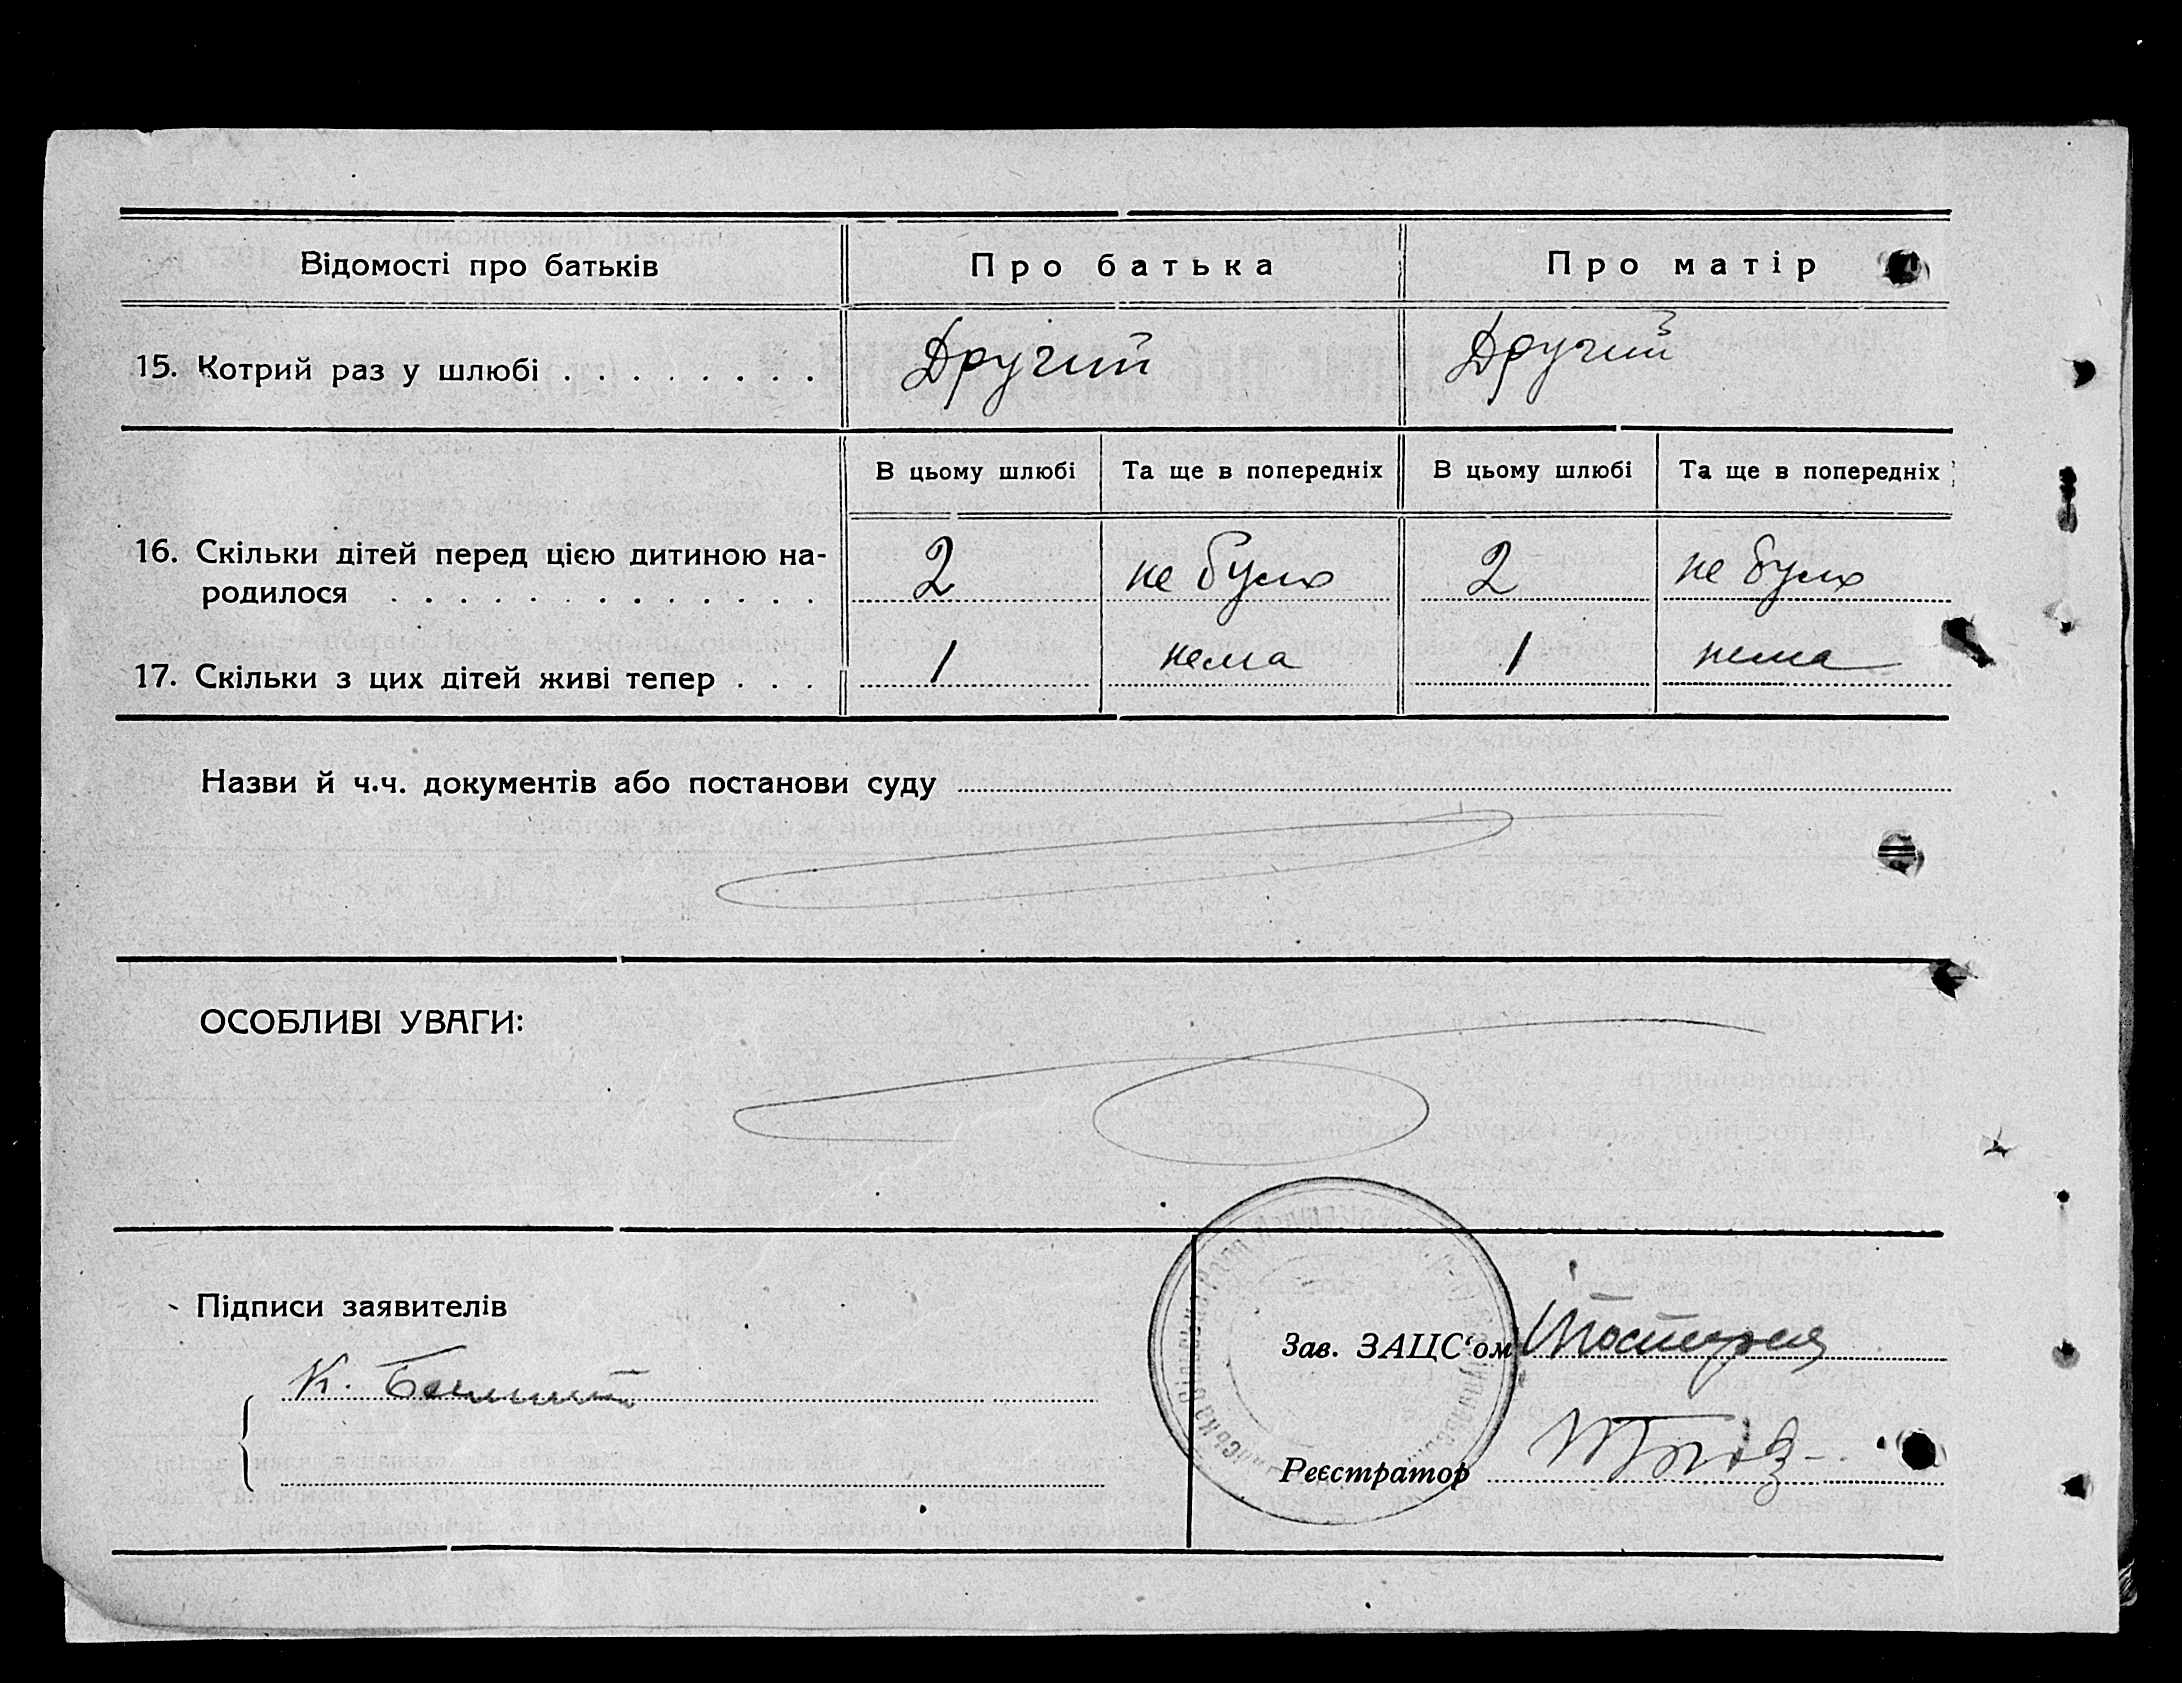 Відомості про батьків Про батька Про матір
15. Котрий раз у шлюбі . . . . . . . . Другий Другий
В цьому шлюбі Та ще в попередніх В цьому шлюбі Та ще в попередніх
16. Скільки дітей перед цією дитиною на-
родилося . . . . . . . . . . . . . 2 не було 2 не було
17. Скільки з цих дітей живі тепер . . . 1 нема 1 нема
Назви й ч.ч. документів або постанови суду
ОСОБЛИВІ УВАГИ:
Підписи заявителів
К.
Зав. ЗАЦС'ом
Реєстратор